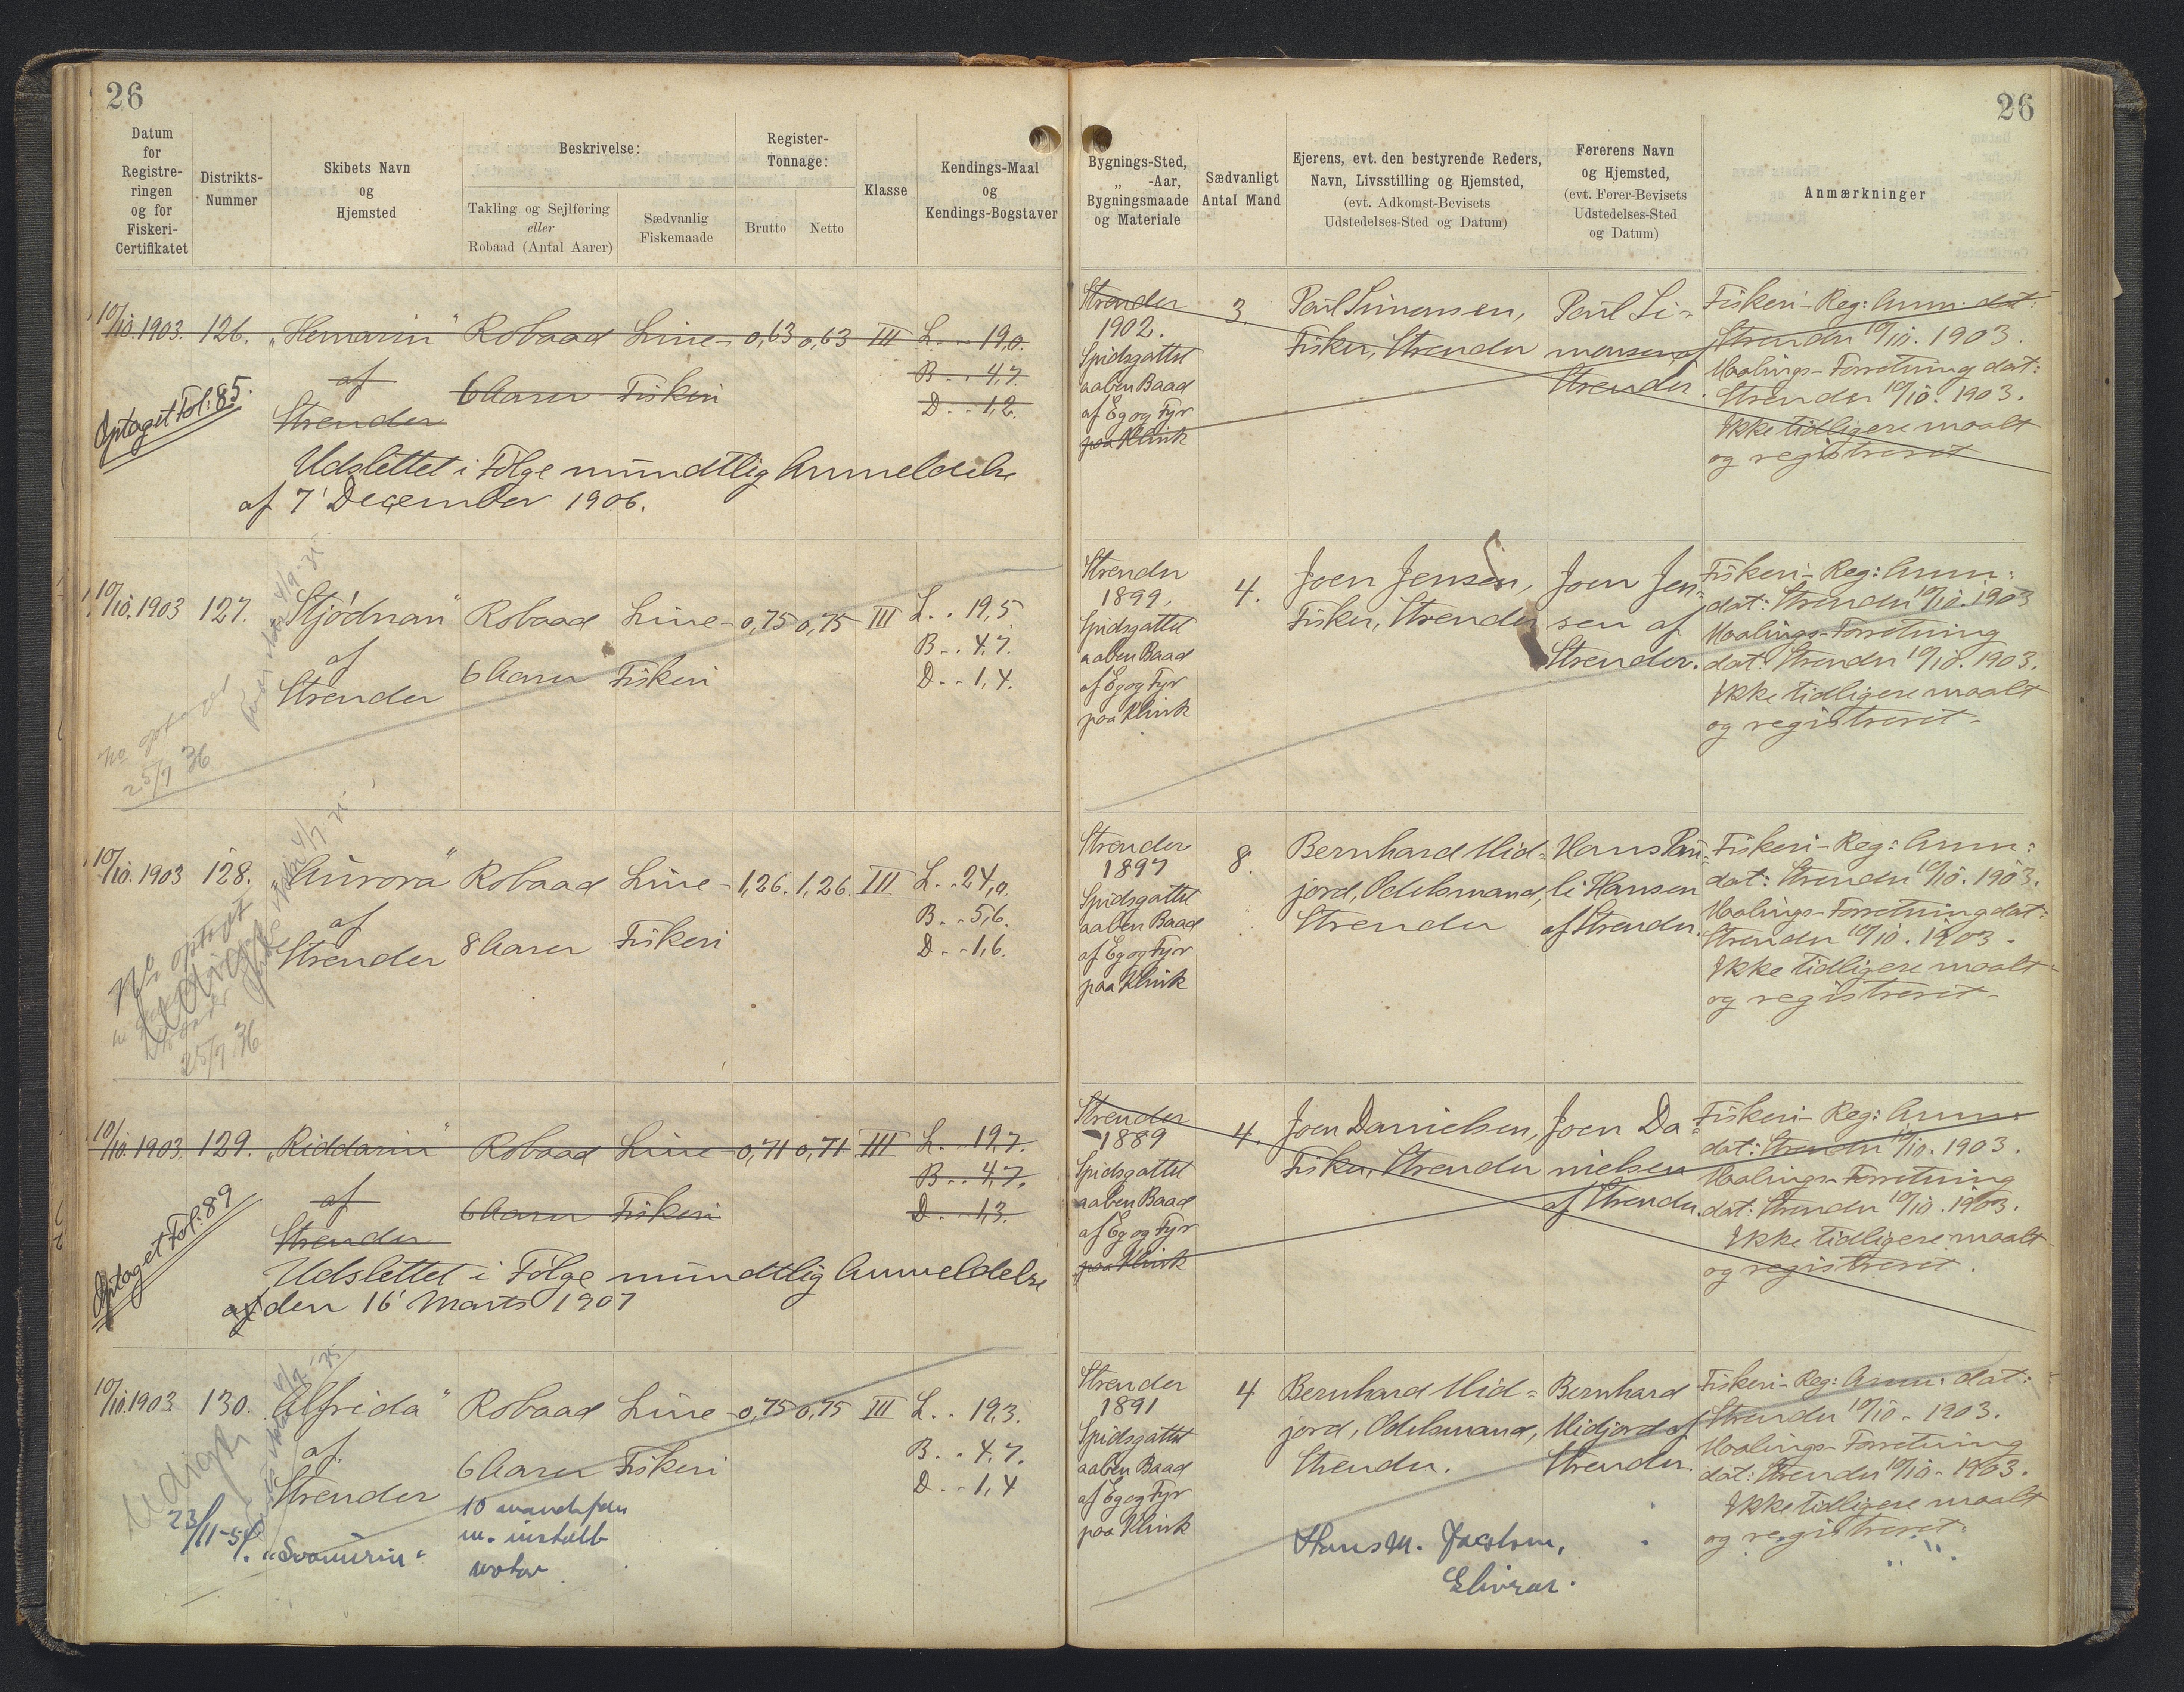 26
26
Datum for Registreringen og for Fiskeri-Certifikatet
Distrikts-Nummer
Skibets Navn og Hjemsted
Beskrivelse:
Takling og Sejlføring eller Robaad (Antal Aarer)
Sædvanlig Fiskemaade
Register-Tonnage:
Brutto
Netto
Klasse
Kendings-Maal og Kendings-Bogstaver
Bygnings-Sted, „ -Aar, Bygningsmaade og Materiale
Sædvanligt Antal Mand
Ejerens, evt. den bestyrende Reders, Navn, Livsstilling og Hjemsted, (evt. Adkomst-Bevisets Udstedelses-Sted og Datum)
Førerens Navn og Hjemsted, (evt. Fører-Bevisets Udstedelses-Sted og Datum)
Anmærkninger
10/10.1903. 126. „Hemarin“ Robaad Line- 0,63 0,63 III L. . 19,0.
af 6 Aarer Fiskeri B. . 4,7.
Strender D. . 1,2.
Optaget Fol: 85.
Udslettet i Følge mundtlig Anmeldelse
af 7' December 1906.
Strender
1902.
Spidsgattet
aaben Baad
af Eg og Fyr
paa Klink
3.
Paul Simonsen,
Fisker, Strender
Paul Si-
monsen af
Strender.
Fiskeri-Reg: Anm: dat:
Strender 10/10. 1903.
Maalings-Forretning dat:
Strender 10/10. 1903.
Ikke tidligere maalt
og registreret
10/10.1903 127. „Stjødnan“ Robaad Line- 0,75 0,75 III L. . 19,5
af 6 Aarer Fiskeri B. . 4,7.
Strender D. . 1,4.
No optaget
25/7 36
Strender
1899.
Spidsgattet
aaben Baad
af Eg og Fyr
paa Klink
4.
Joen Jensen,
Fisker, Strender
Joen Jen-
sen af
Strender.
Fiskeri-Reg: Anm:
dat: Strender 10/10.1903
Maalings-Forretning
dat: Strender 10/10.1903.
Ikke tidligere maalt
og registreret.
10/10.1903 128. „Aurora“ Robaad Line- 1,26. 1,26. III L. . 24,0.
af 8 Aarer Fiskeri B. . 5,6.
Strender D. . 1,6.
No optaget
25/7 36
Strender
1897
Spidsgattet
aaben Baad
af Eg og Fyr
paa Klink
8.
Bernhard Mid-
jord, Odelsmand,
Strender
Hans Pau-
li Hansen
af Strender.
Fiskeri-Reg: Anm:
dat: Strender 10/10. 1903.
Maalings-Forretning dat:
Strender 10/10. 1903.
Ikke tidligere maalt
og registreret.
10/10.1903. 129. „Riddarin“ Robaad Line- 0,71 0,71 III L. . 19,7.
af 6 Aarer Fiskeri B. . 4,7.
Strender D. . 1,3.
Optaget Fol: 89
Udslettet i Følge mundtlig Anmeldelse
af den 16' Marts 1907
Strender
1889
Spidsgattet
aaben Baad
af Eg og Fyr
paa Klink
4.
Joen Danielsen,
Fisker, Strender
Joen Da-
nielsen
af Strender.
Fiskeri-Reg: Anm:
dat: Strender 10/10. 1903.
Maalings-Forretning
dat: Strender 10/10. 1903.
Ikke tidligere maalt
og registreret.
10/10.1903. 130. „Alfrida“ Robaad Line- 0,75 0,75 III L. . 19,3.
af 6 Aarer Fiskeri B. . 4,7.
Strender D. . 1,4
Udigt
23/11-54. „Svanurin“
10 mandsfar
m. install
motor
Strender
1891
Spidsgattet
aaben Baad
af Eg og Fyr
paa Klink
4
Bernhard Mid-
jord, Odelsmand,
Strender.
Bernhard
Midjord af
Strender.
Fiskeri-Reg: Anm: dat:
Strender 10/10. 1903.
Maalings-Forretning
dat: Strender 10/10. 1903.
Ikke tidligere maalt
og registreret.
Hans M. Jacobsen,